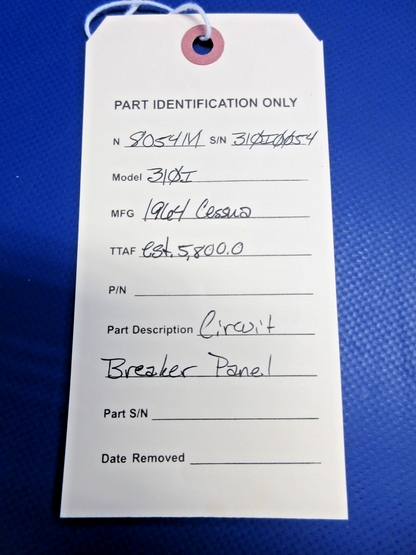 PART IDENTIFICATION ONLY
N 8054M S/N 310I0054
Model 310I
MFG 1964 Cessna
TTAF est. 5,800.0
P/N
Part Description Circuit
Breaker Panel
Part S/N
Date Removed